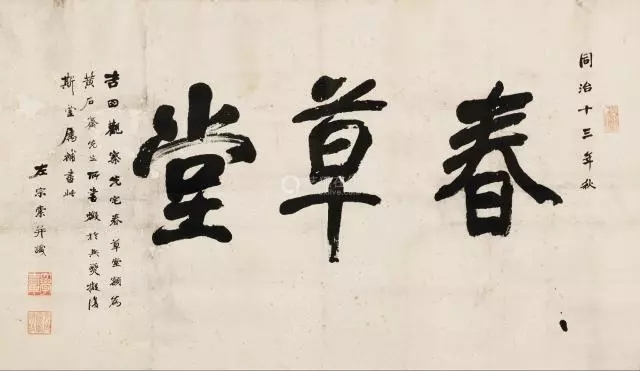 同治十三年秋
春草堂
吉田觀察先宅春草堂額爲
黃石齋先生所書燬於兵燹擬復
斯堂屬補書此
左宗棠并識